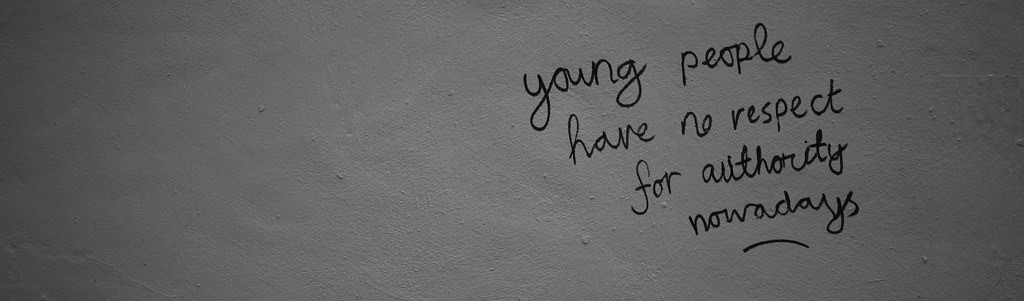 young people
have no respect
for authority
nowadays